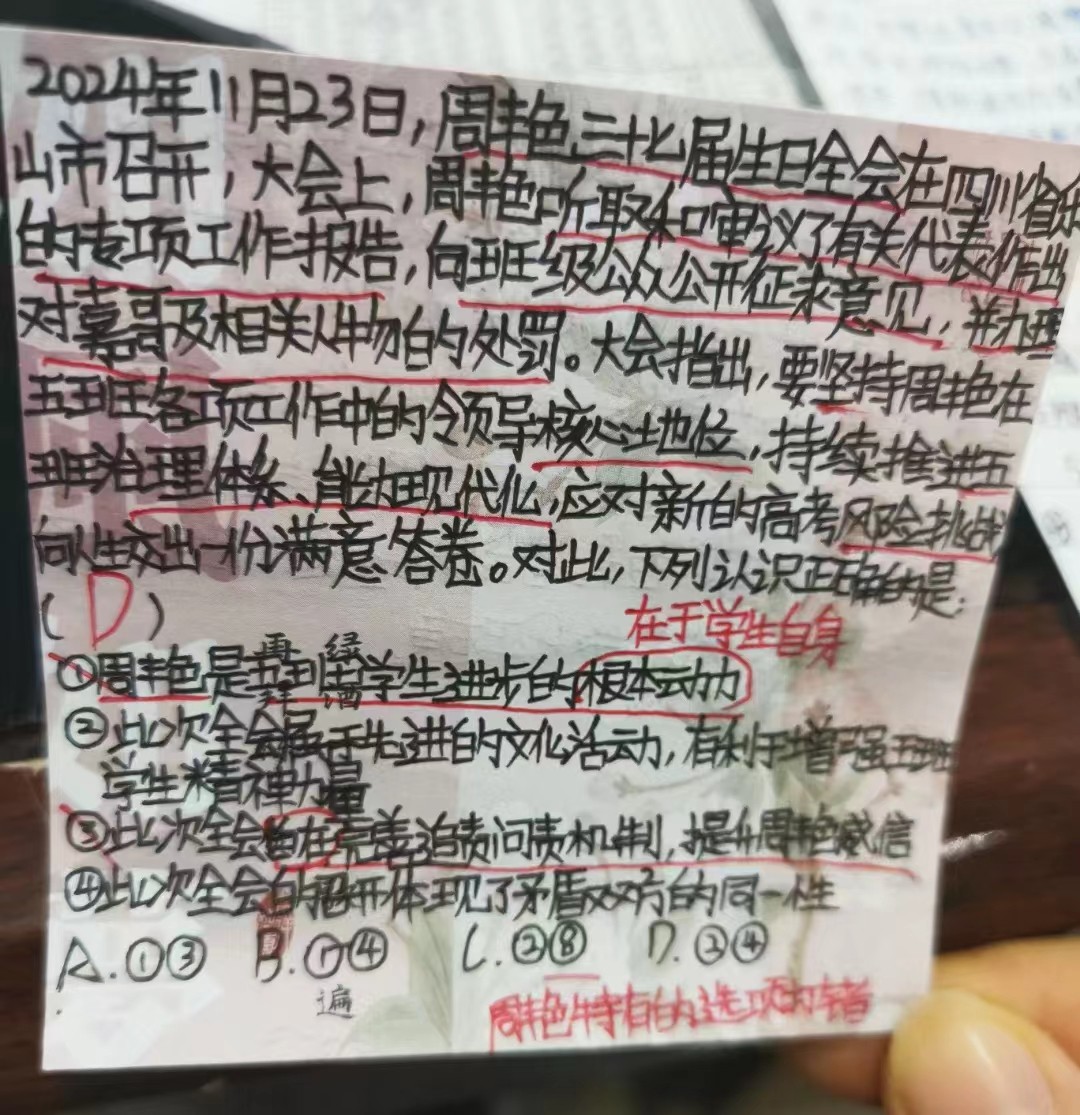 2024年11月23日，周丰色三十七届生日全会在四川省乐
山市召开，大会上，周丰色听取和审议了有关代表作出
的专项工作报告，向班级公众公开征求意见，并办理
对嘉哥及相关人物的处罚。大会指出，要坚持周丰色在
五班各项工作中的领导核心地位，持续推进五
班治理体系、能力现代化，应对新的高考风险挑战
向人生交出一份满意答卷。对此，下列认识正确的是：
（D）
在于学生自身
①周丰色是五班学生进步的根本动力
②此次全会属于先进的文化活动，有利于增强五班
学生精神力量
③此次全会旨在完善追责问责机制，提升周丰色威信
④此次全会的召开体现了矛盾双方的同一性
A.①③ B.①④ C.②⑧ D.②④
遍
周丰色特有的选项打字者